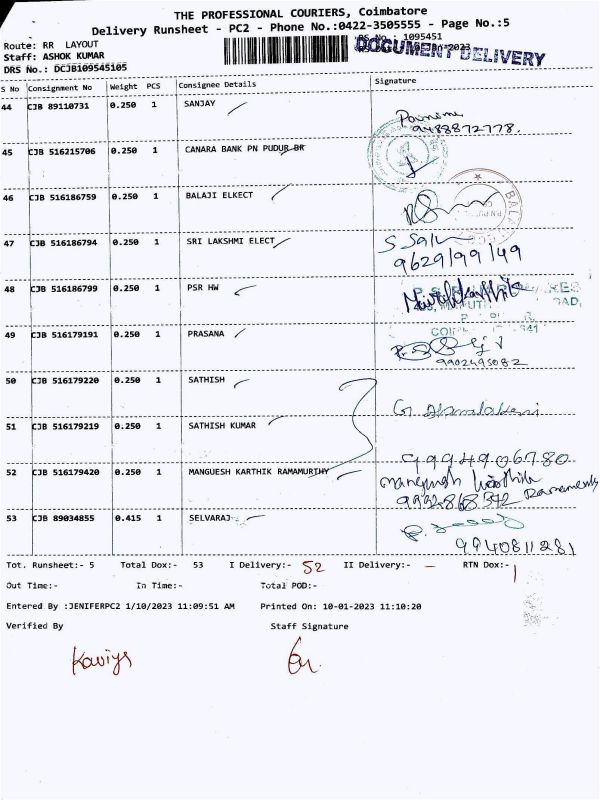 THE PROFESSIONAL COURIERS, Coimbatore
Delivery Runsheet - PC2 - Phone No.:0422-3505555 - Page No.:5
Route: RR LAYOUT
RS No.: 1095451
Staff: ASHOK KUMAR
DOCUMENT DELIVERY
DRS No.: DCJB109545105
S No Consignment No Weight PCS Consignee Details Signature
44 CJB 89110731 0.250 1 SANJAY
9488872778.
45 CJB 516215706 0.250 1 CANARA BANK PN PUDUR BR
46 CJB 516186759 0.250 1 BALAJI ELKECT
47 CJB 516186794 0.250 1 SRI LAKSHMI ELECT
9629199149
48 CJB 516186799 0.250 1 PSR HW
49 CJB 516179191 0.250 1 PRASANA
9902495082
50 CJB 516179220 0.250 1 SATHISH
51 CJB 516179219 0.250 1 SATHISH KUMAR
9994906780
52 CJB 516179420 0.250 1 MANGUESH KARTHIK RAMAMURTHY
53 CJB 89034855 0.415 1 SELVARAJ
9940811281
Tot. Runsheet:- 5 Total Dox:- 53 I Delivery:- 52 II Delivery:- - RTN Dox:- 1
Out Time:- In Time:- Total POD:-
Entered By :JENIFERPC2 1/10/2023 11:09:51 AM Printed On: 10-01-2023 11:10:20
Verified By Staff Signature
Kaviya